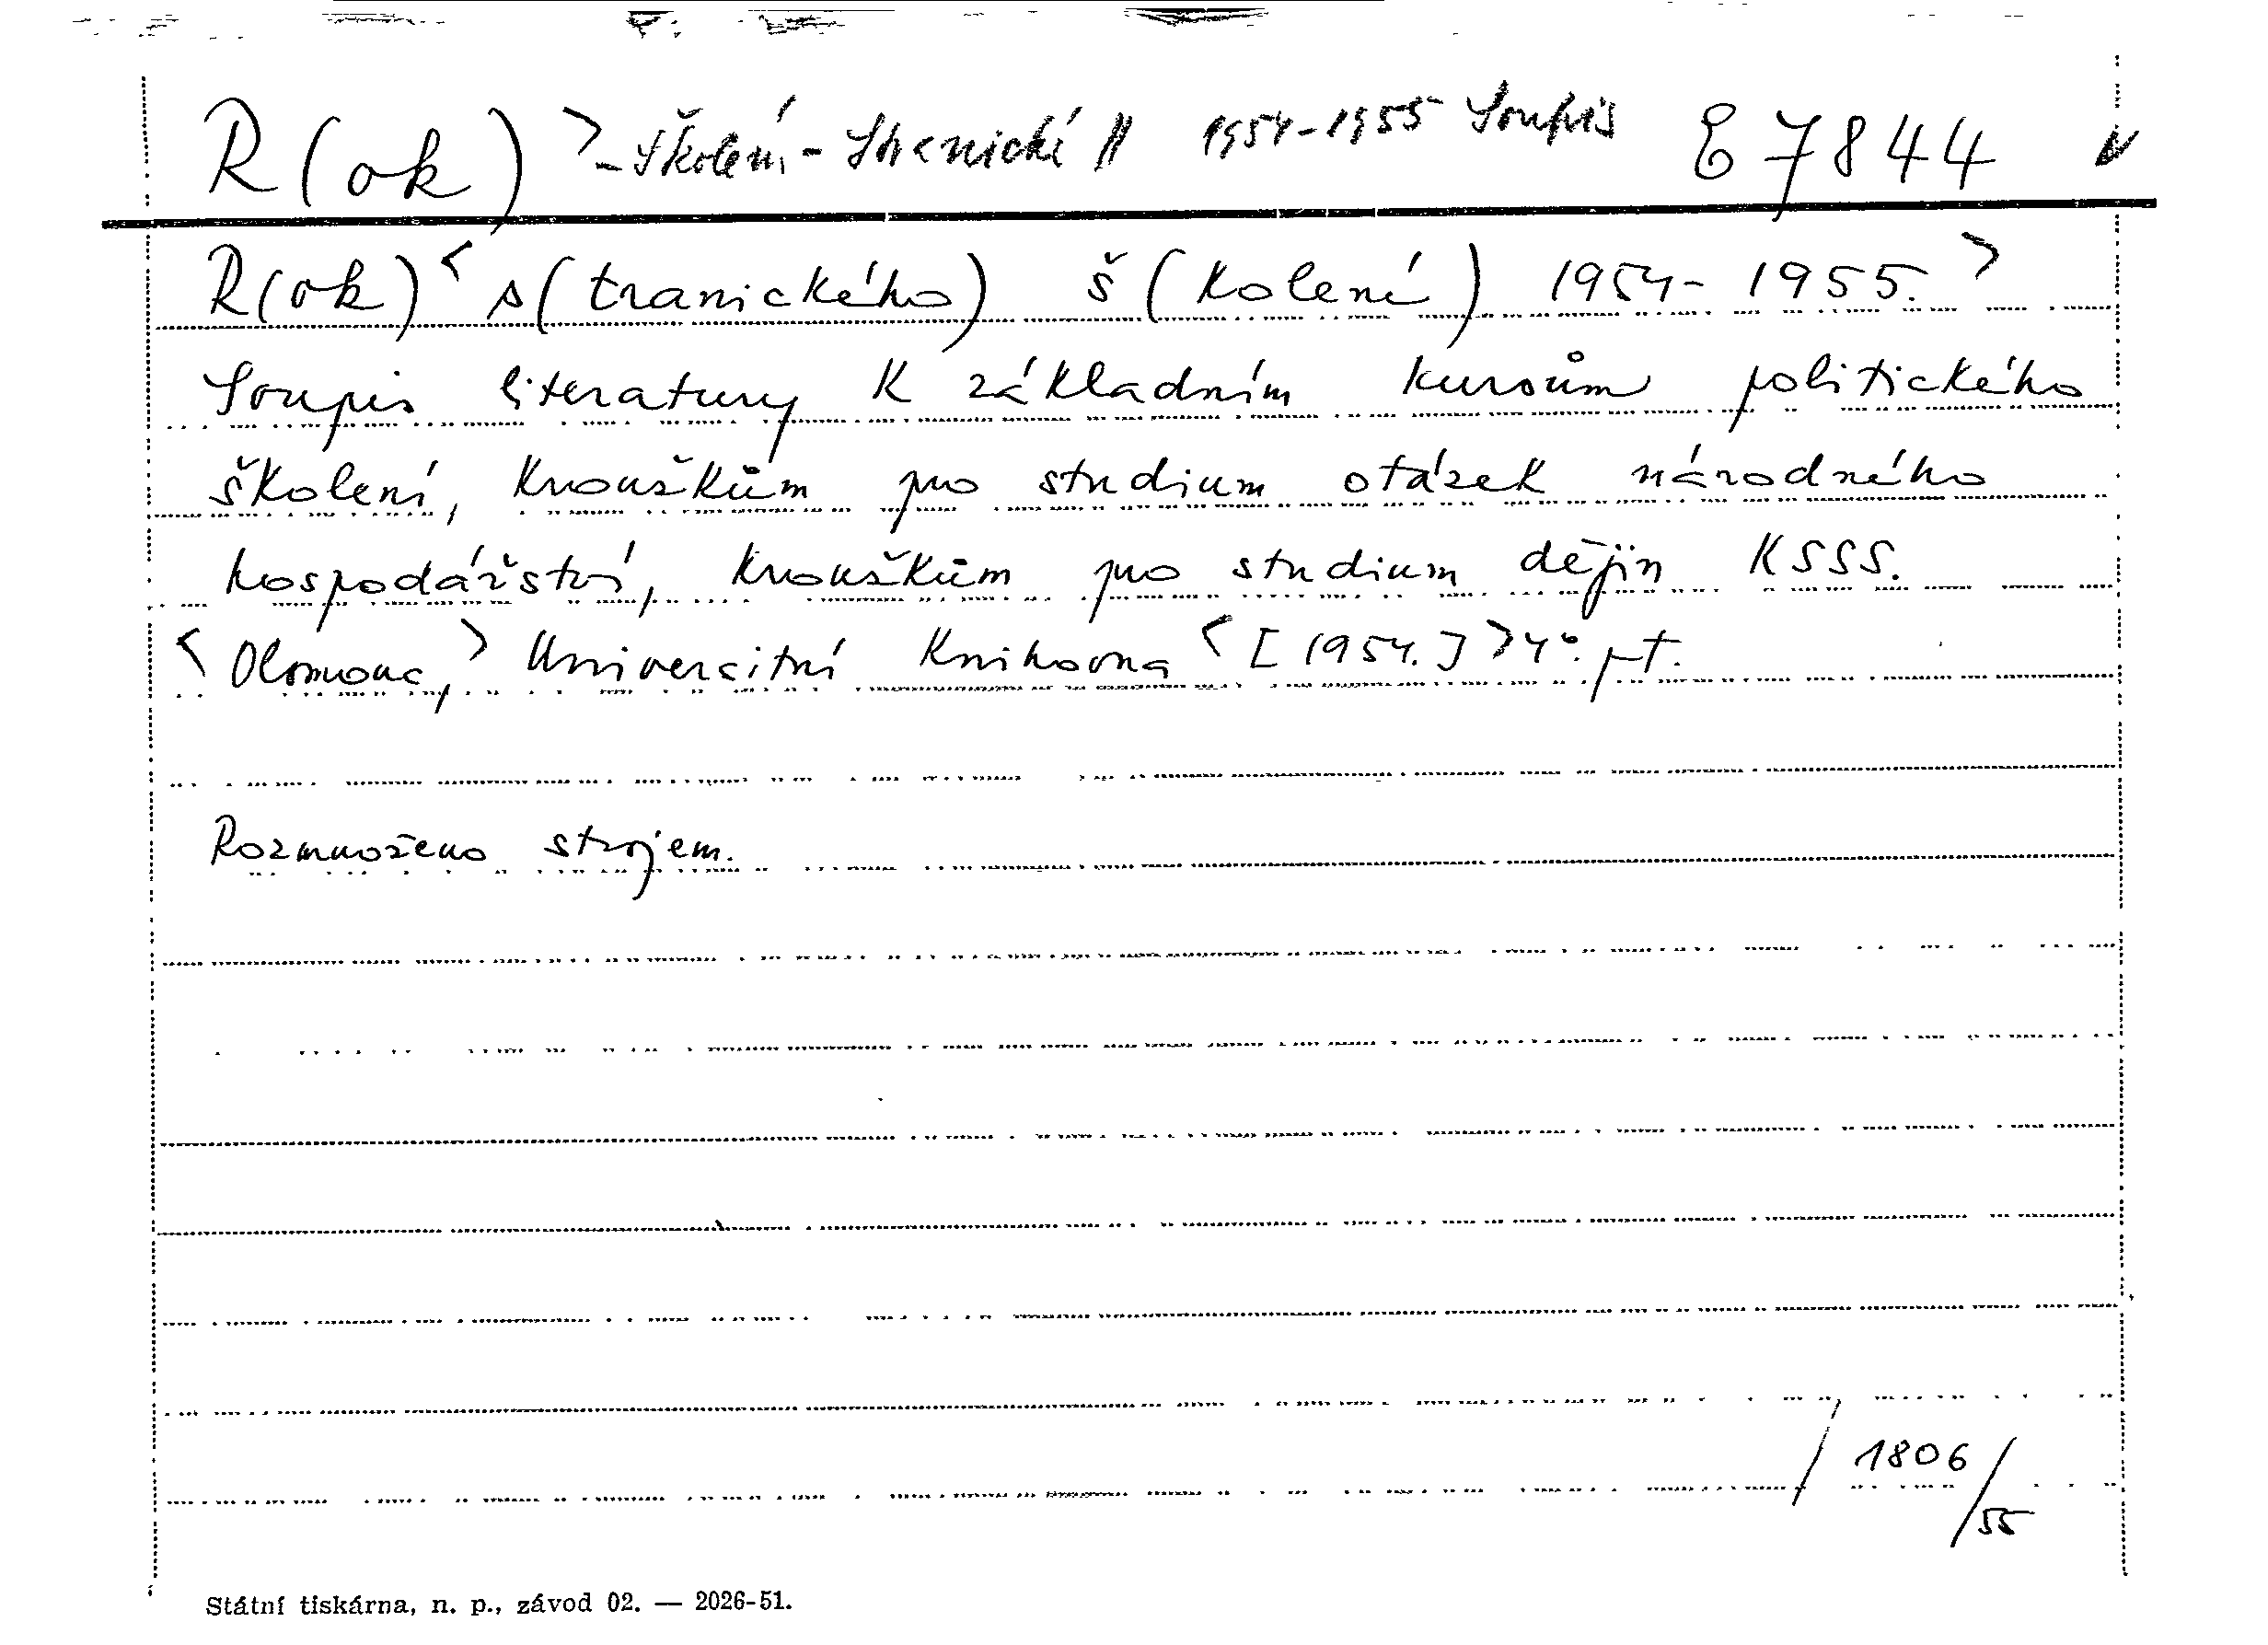 R(ok) > - Školení - Stranické || 1954-1955 Soupis E 7844
R(ok) < s(tranického) š(kolení) 1954-1955. >
Soupis literatury k základním kursům politického
školení, kroužkům pro studium otázek národného
hospodářství, kroužkům pro studium dějin KSSS.
< Olomouc, > Universitní knihovna < [1954.] > 4°. pt.
Rozmnoženo strojem.
1806/55
Státní tiskárna, n. p., závod 02. — 2026-51.